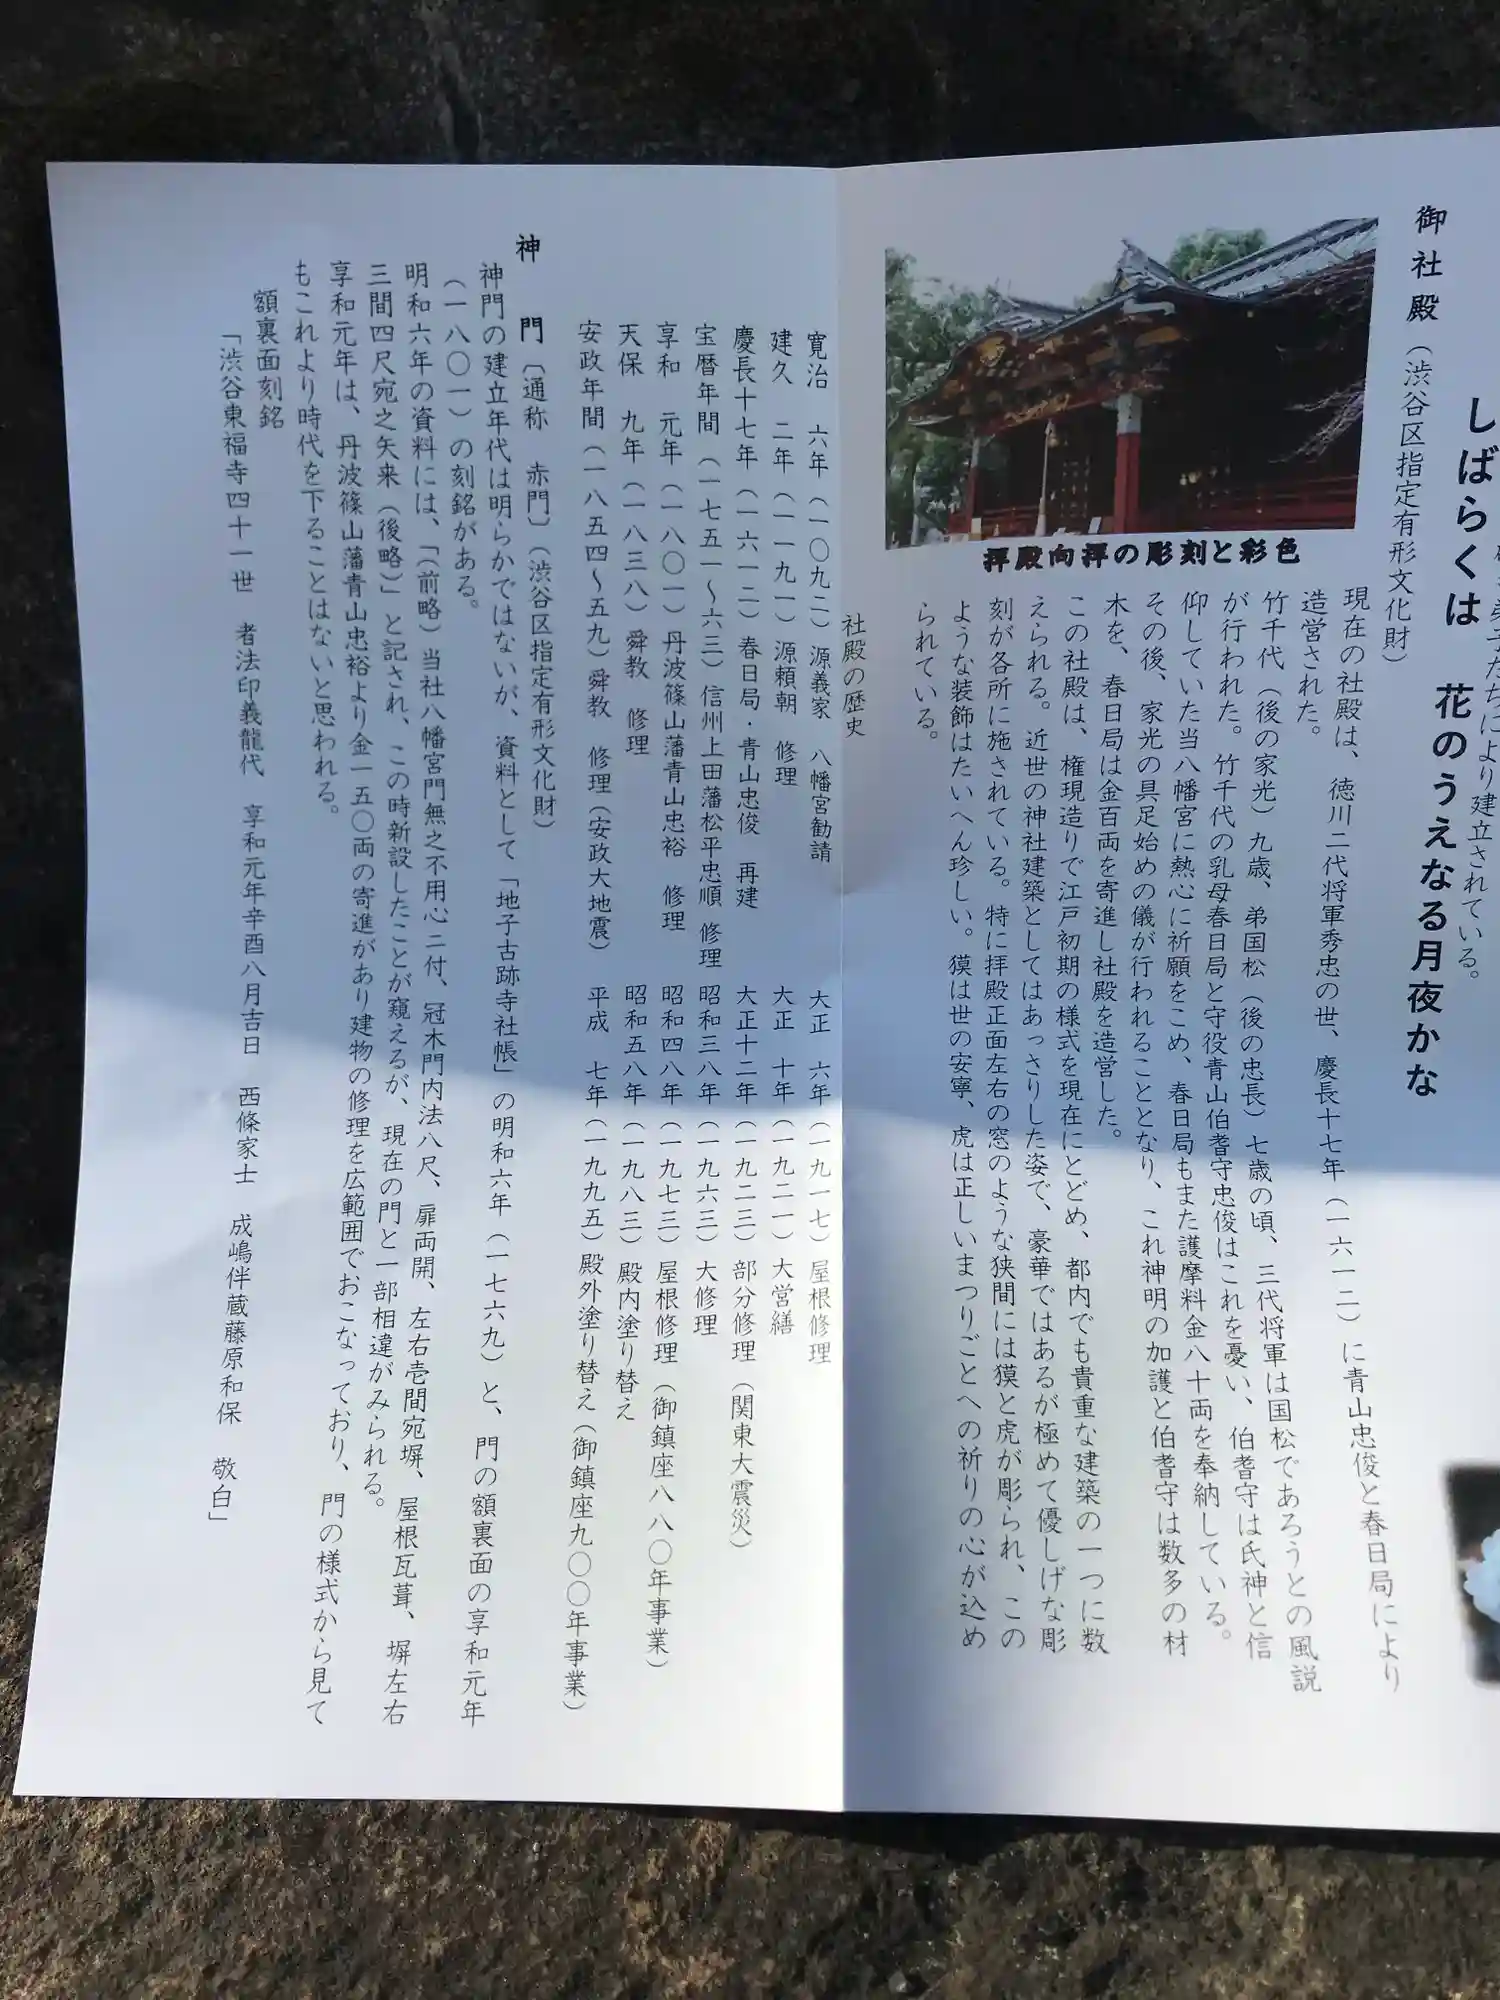 弟子たちにより建立されている。
しばらくは　花のうえなる月夜かな
御社殿（渋谷区指定有形文化財）
拝殿向拝の彫刻と彩色
現在の社殿は、徳川二代将軍秀忠の世、慶長十七年（一六一二）に青山忠俊と春日局により
造営された。
竹千代（後の家光）九歳、弟国松（後の忠長）七歳の頃、三代将軍は国松であろうとの風説
が行われた。竹千代の乳母春日局と守役青山伯耆守忠俊はこれを憂い、伯耆守は氏神と信
仰していた当八幡宮に熱心に祈願をこめ、春日局もまた護摩料金八十両を奉納している。
その後、家光の具足始めの儀が行われることとなり、これ神明の加護と伯耆守は数多の材
木を、春日局は金百両を寄進し社殿を造営した。
この社殿は、権現造りで江戸初期の様式を現在にとどめ、都内でも貴重な建築の一つに数
えられる。近世の神社建築としてはあっさりした姿で、豪華ではあるが極めて優しげな彫
刻が各所に施されている。特に拝殿正面左右の窓のような狭間には獏と虎が彫られ、この
ような装飾はたいへん珍しい。獏は世の安寧、虎は正しいまつりごとへの祈りの心が込め
られている。
社殿の歴史
寛治　六年（一〇九二）源義家　八幡宮勧請
建久　二年（一一九一）源頼朝　修理
慶長十七年（一六一二）春日局・青山忠俊　再建
宝暦年間（一七五一～六三）信州上田藩松平忠順　修理
享和　元年（一八〇一）丹波篠山藩青山忠裕　修理
天保　九年（一八三八）舜教　修理
安政年間（一八五四～五九）舜教　修理（安政大地震）
大正　六年（一九一七）屋根修理
大正　十年（一九二一）大営繕
大正十二年（一九二三）部分修理（関東大震災）
昭和三八年（一九六三）大修理
昭和四八年（一九七三）屋根修理（御鎮座八八〇年事業）
昭和五八年（一九八三）殿内塗り替え
平成　七年（一九九五）殿外塗り替え（御鎮座九〇〇年事業）
神　門〔通称　赤門〕（渋谷区指定有形文化財）
神門の建立年代は明らかではないが、資料として「地子古跡寺社帳」の明和六年（一七六九）と、門の額裏面の享和元年
（一八〇一）の刻銘がある。
明和六年の資料には、「（前略）当社八幡宮門無之不用心ニ付、冠木門内法八尺、扉両開、左右壱間宛塀、屋根瓦葺、塀左右
三間四尺宛之矢来（後略）」と記され、この時新設したことが窺えるが、現在の門と一部相違がみられる。
享和元年は、丹波篠山藩青山忠裕より金一五〇両の寄進があり建物の修理を広範囲でおこなっており、門の様式から見て
もこれより時代を下ることはないと思われる。
額裏面刻銘
「渋谷東福寺四十一世　者法印義龍代　享和元年辛酉八月吉日　西條家士　成嶋伴蔵藤原和保　敬白」